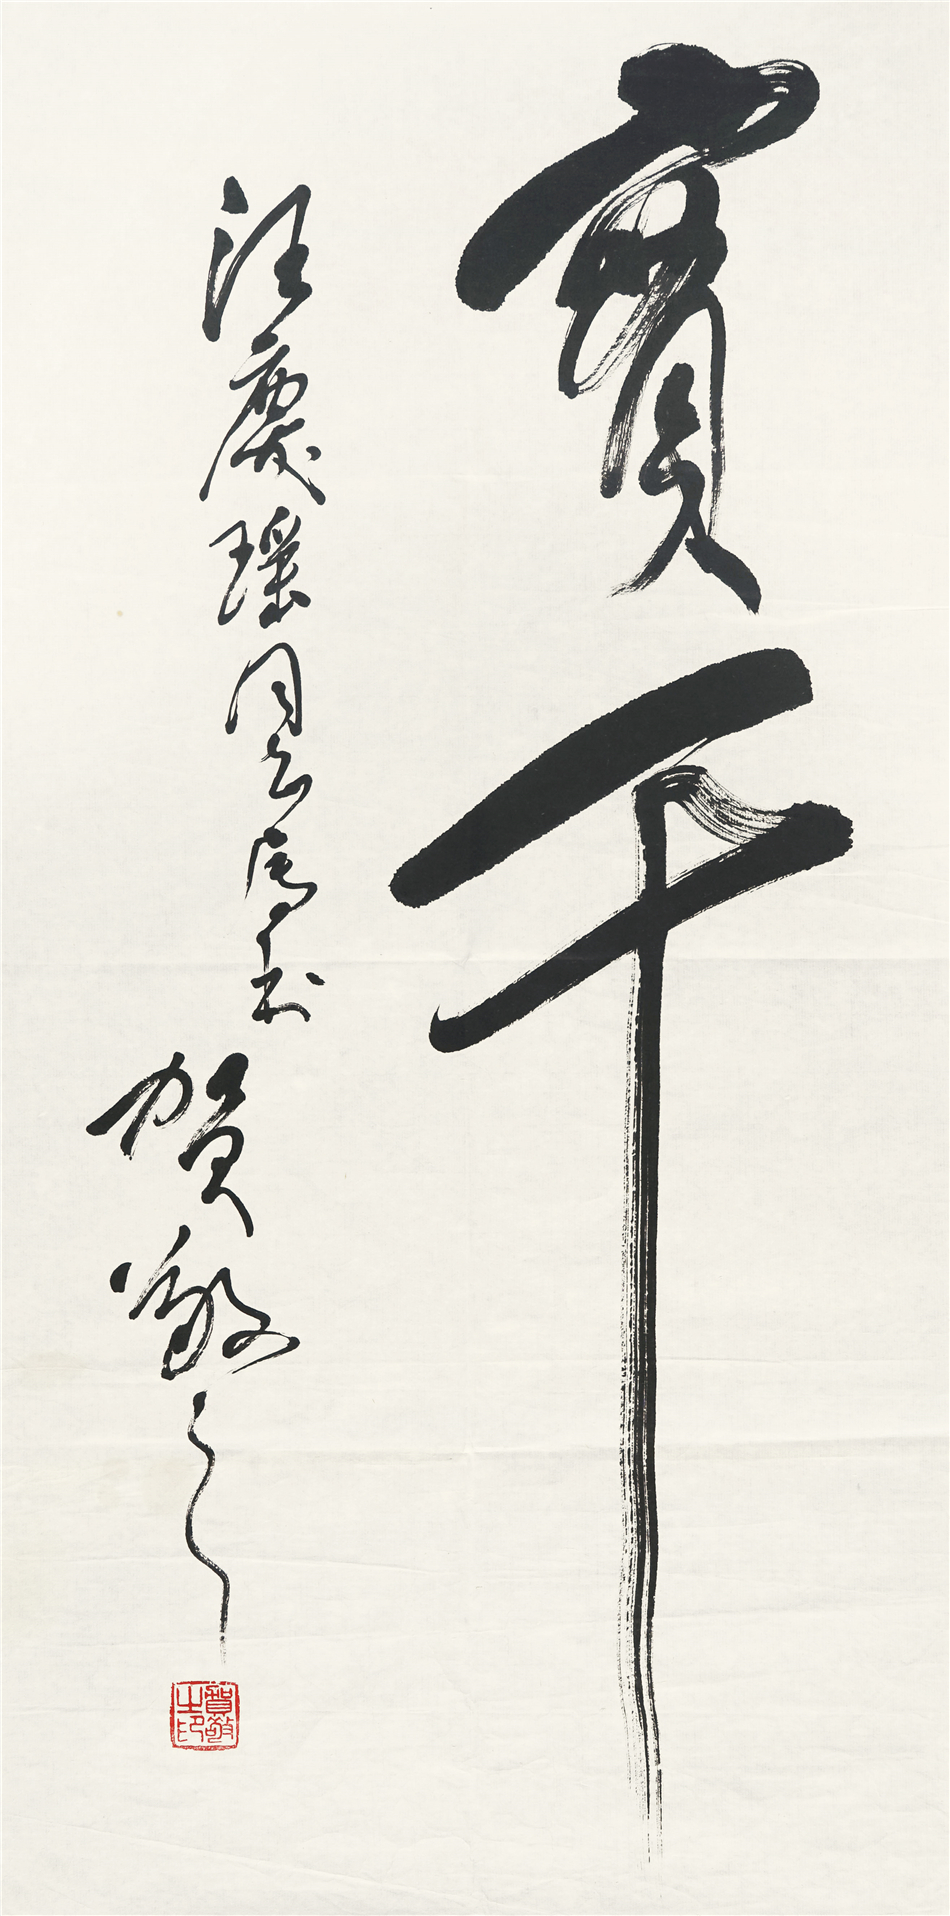 實干
汪慶瑶同志屬書
賀敬之
賀敬之印